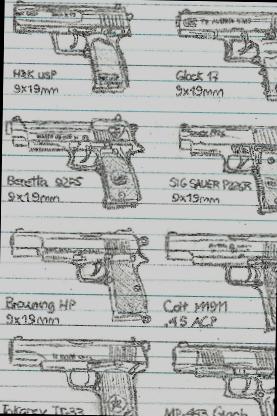 H&K USP
9x19mm
Glock 17
9x19mm
Beretta 92FS
9x19mm
SIG SAUER P226R
9x19mm
Browning HP
9x19mm
Colt M1911
.45 ACP
Tokarev TT-33
MP-443 Grach